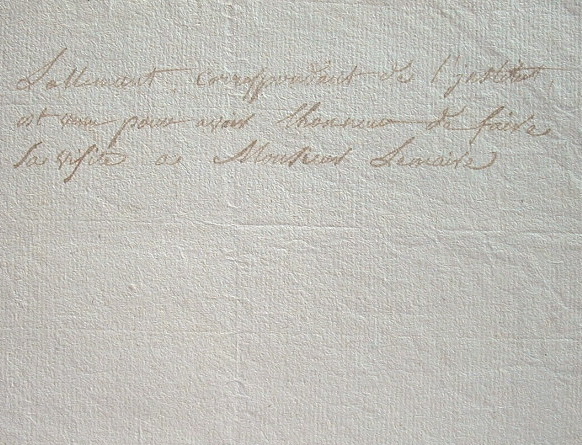 Lallemant, correspondant de l'institut,
est venu pour avoir lhonneur de faire
sa visite a Monsieur Lemaire